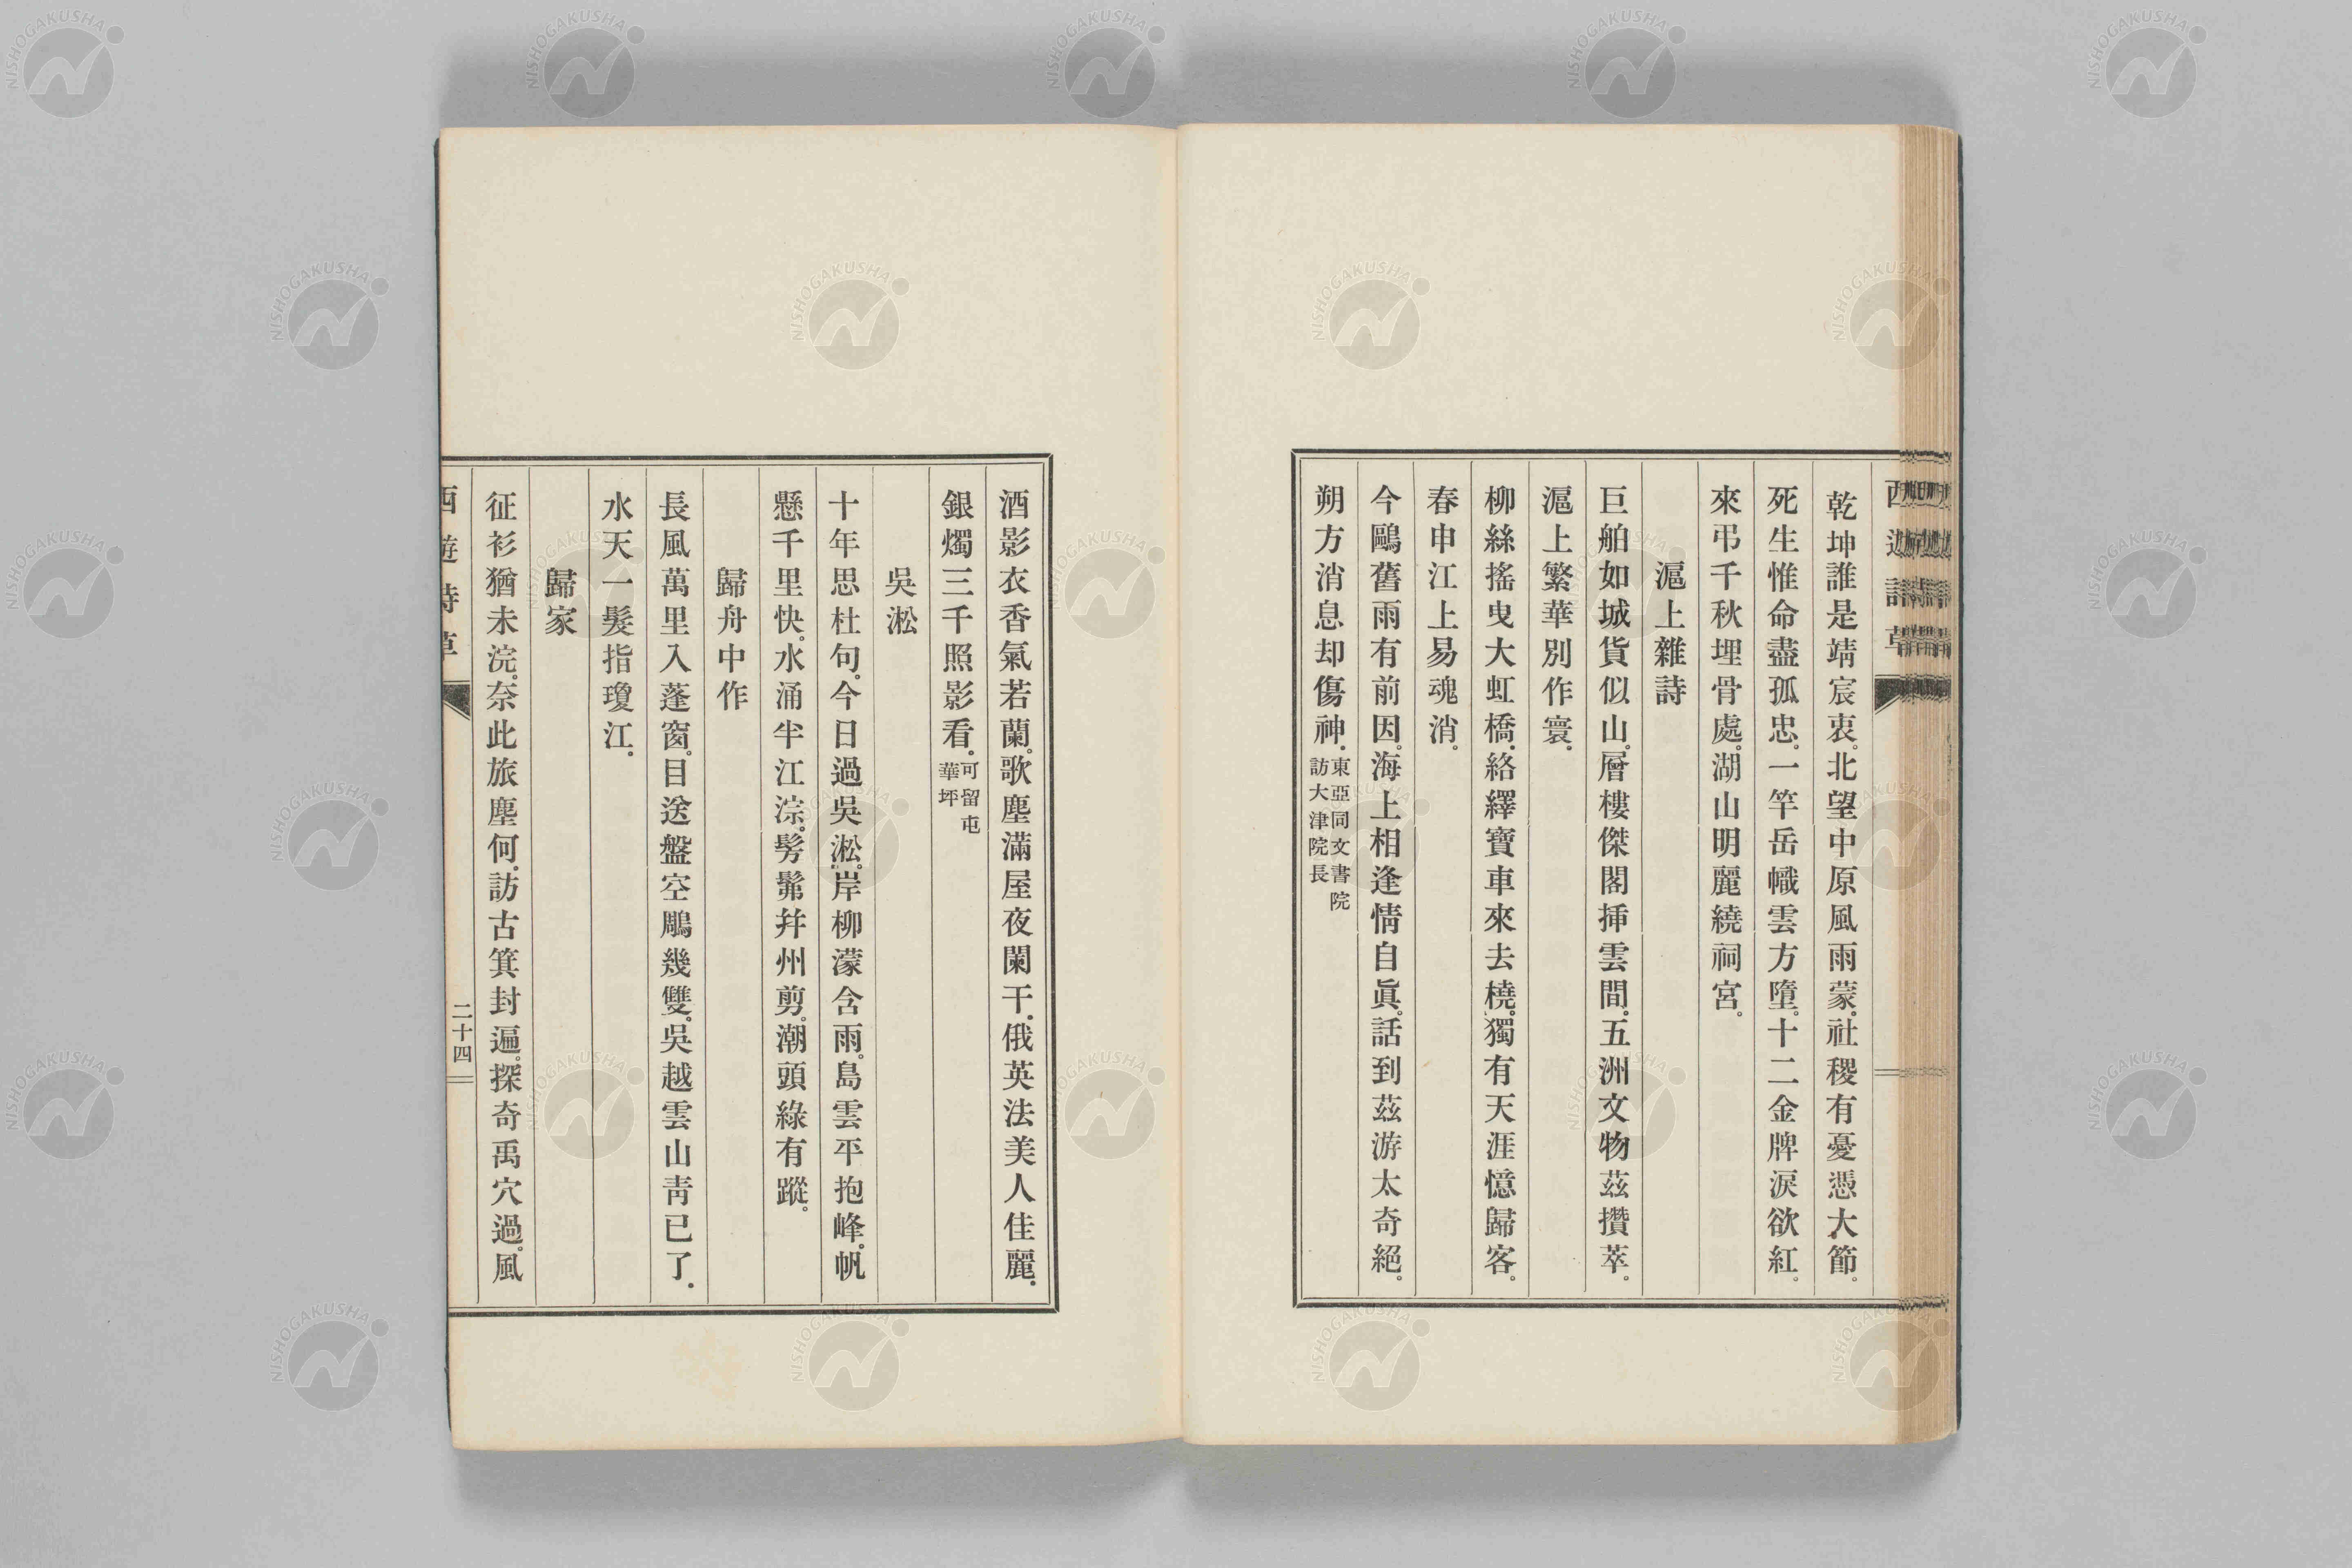 西遊詩草
乾坤誰是靖宸衷。北望中原風雨蒙。社稷有憂憑大節。
死生惟命盡孤忠。一竿岳幟雲方墮。十二金牌淚欲紅。
來弔千秋埋骨處。湖山明麗繞祠宮。
滬上雜詩
巨舶如城貨似山。層樓傑閣挿雲間。五洲文物茲攢萃。
滬上繁華別作寰。
柳絲搖曳大虹橋。絡繹寶車來去橈。獨有天涯憶歸客。
春申江上易魂消。
今鷗舊雨有前因。海上相逢情自眞。話到茲游太奇絕。
朔方消息却傷神。東亞同文書院
訪大津院長
酒影衣香氣若蘭。歌塵滿屋夜闌干。俄英法美人佳麗。
銀燭三千照影看。可留屯
華坪
吳淞
十年思杜句。今日過吳淞。岸柳濛含雨。島雲平抱峰。帆
懸千里快。水涌半江淙。髣髴幷州剪。潮頭綠有蹤。
歸舟中作
長風萬里入蓬窗。目送盤空鵰幾雙。吳越雲山靑已了。
水天一髮指瓊江。
歸家
征衫猶未浣。奈此旅塵何。訪古箕封遍。探奇禹穴過。風
西遊詩草
二十四
NISHOGAKUSHA